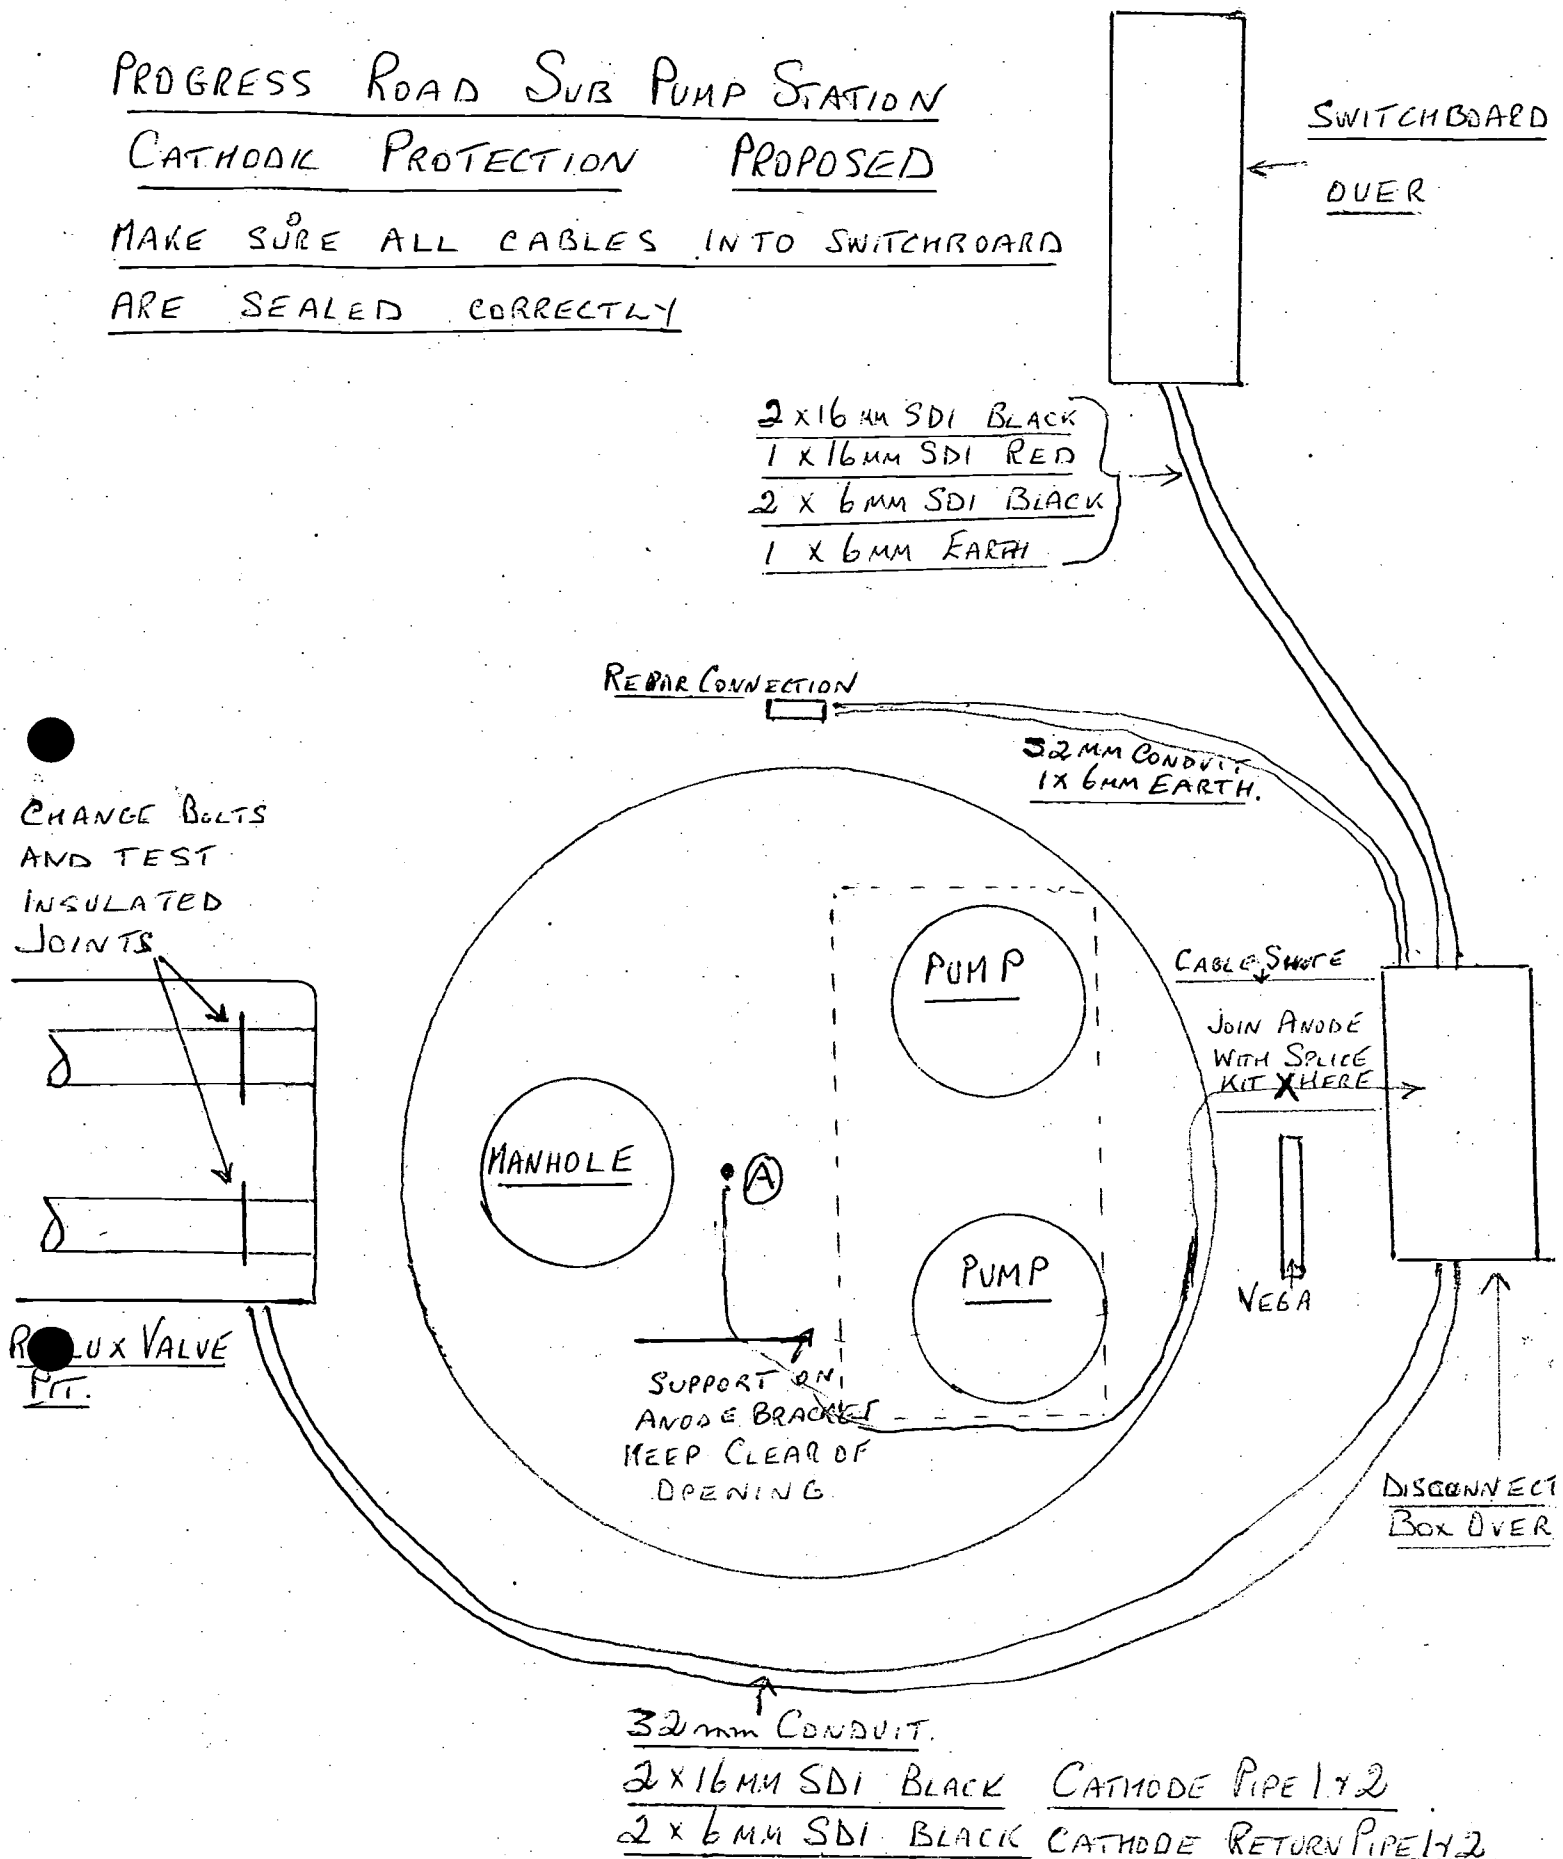 PROGRESS ROAD SUB PUMP STATION
CATHODIC PROTECTION PROPOSED
MAKE SURE ALL CABLES INTO SWITCHBOARD
ARE SEALED CORRECTLY
SWITCHBOARD
OVER
2 x 16 MM SDI BLACK
1 x 16 MM SDI RED
2 x 6 MM SDI BLACK
1 x 6 MM EARTH
REBAR CONNECTION
32 MM CONDUIT
1 x 6 MM EARTH.
CHANGE BOLTS
AND TEST
INSULATED
JOINTS
PUMP
CABLE SHUTE
JOIN ANODE
WITH SPLICE
KIT X HERE
MANHOLE
A
PUMP
VEGA
VALVE
PIT.
SUPPORT ON
ANODE BRACKET
KEEP CLEAR OF
OPENING
DISCONNECT
BOX OVER
32mm CONDUIT.
2 x 16 MM SDI BLACK CATHODE PIPE 1 & 2
2 x 6 MM SDI BLACK CATHODE RETURN PIPE 1 & 2